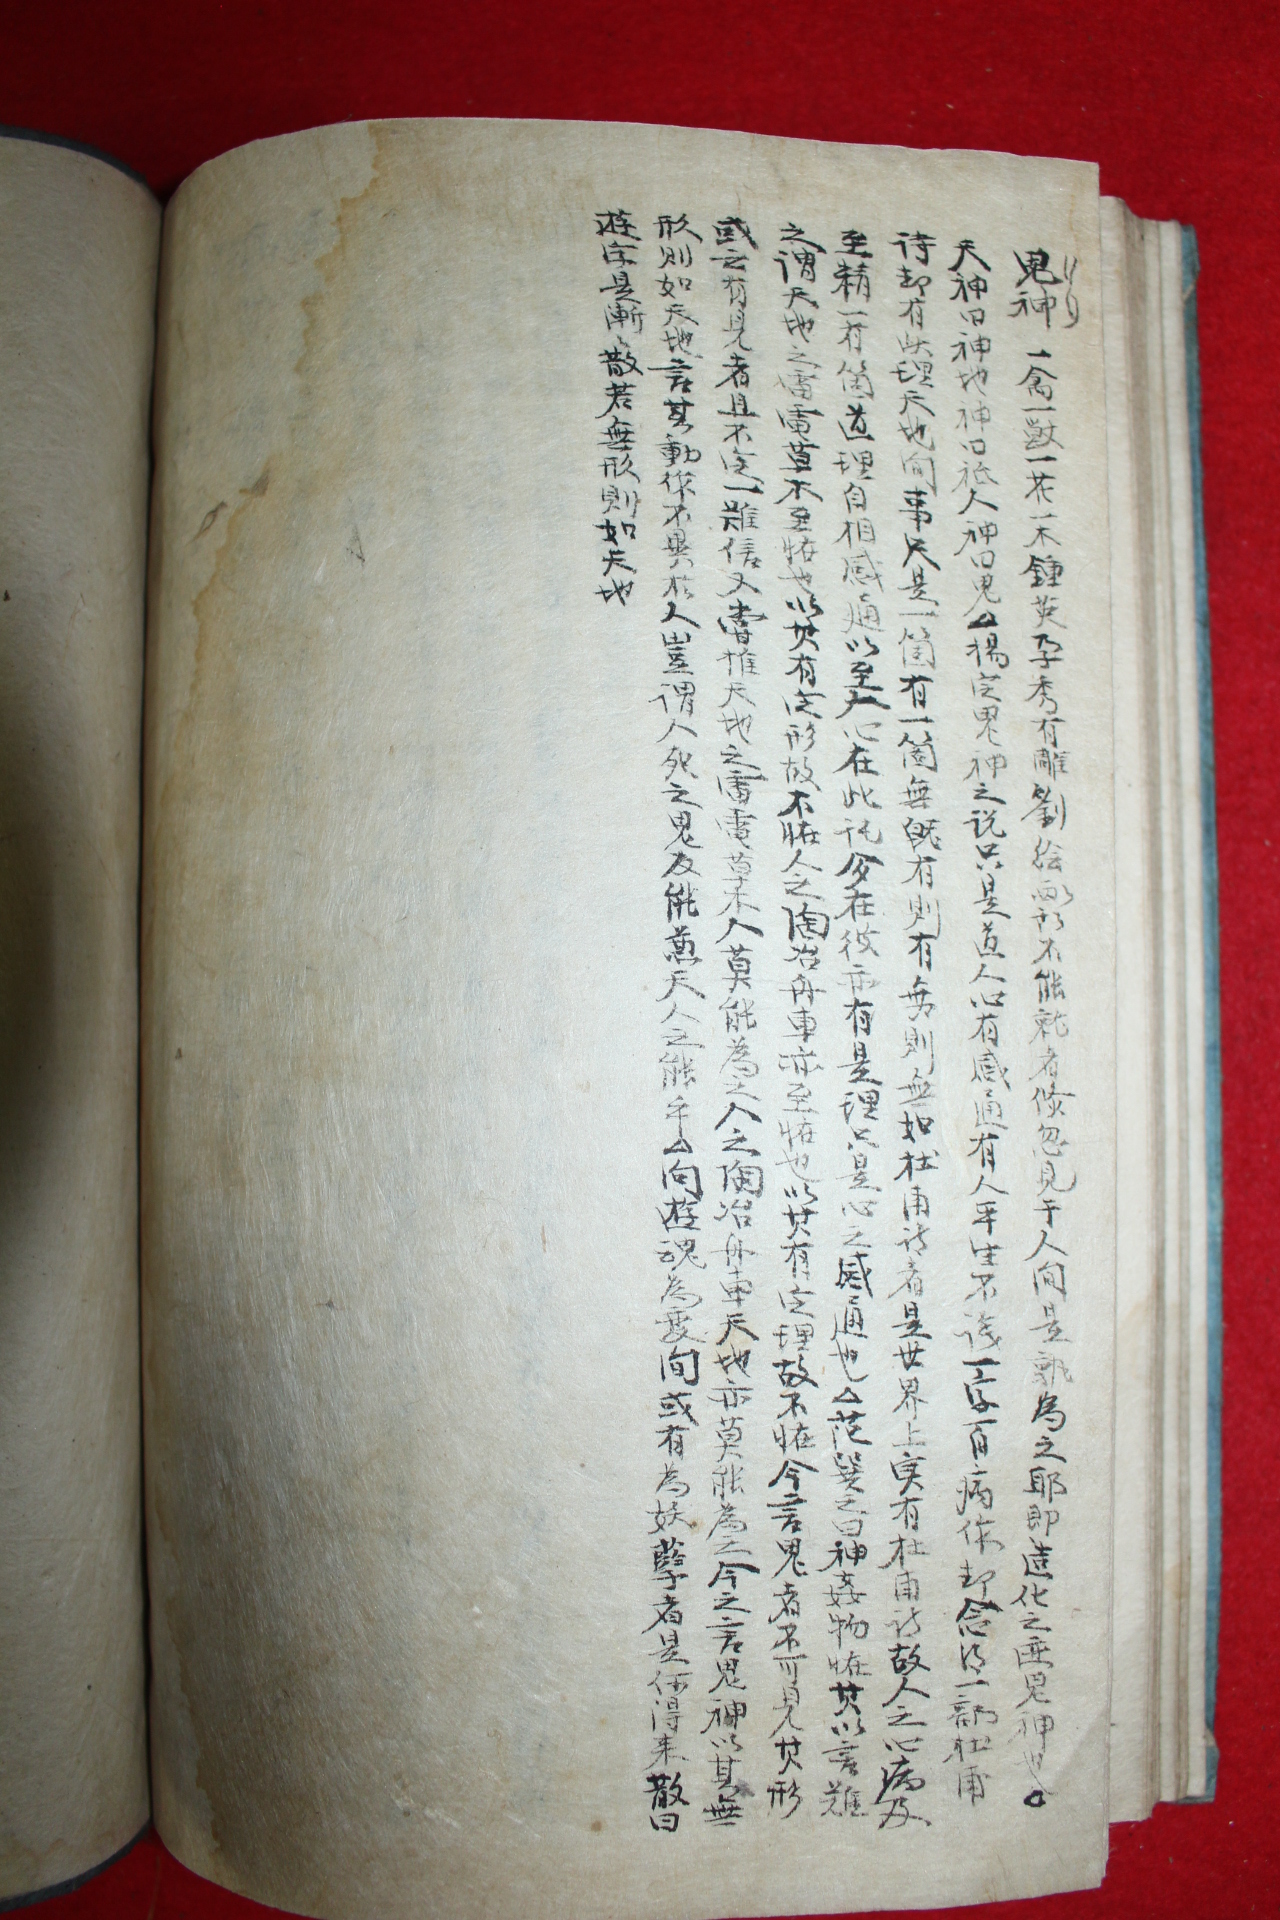 鬼神 一禽一獸一花一木鍾英孕秀有雕劉繪畵所不能就者倐忽見于人间是孰為之耶即造化之迹鬼神也△
天神曰神地神曰祗人神曰鬼△揚定鬼神之说只是道人心有感通有人平生不識一字一日病作却念得一部杜甫
诗却有此理天地间事只是一箇有一箇無旣有則有無則無如杜甫诗者是世界上实有杜甫诗故人之心病及
至精一有箇道理自相感通以至人心在此託夢在彼亦有是理只是心之感通也△范巽之曰神姦物恠其以言難
之谓天地之雷電草木至恠也以其有定形故不恠人之陶冶舟車亦至恠也以其有定理故不恠今言鬼者不可見其形
或云有見者且不定一難信又嘗推天地之雷電草木人莫能為之人之陶冶舟車天地亦莫能為之今之言鬼神以其無
形則如天地言其動作不異於人豈谓人死之鬼反能兼天人之能乎△问遊魂為変间或有為妖孽者是何得来散曰
遊字是漸〻散若無形則如天地